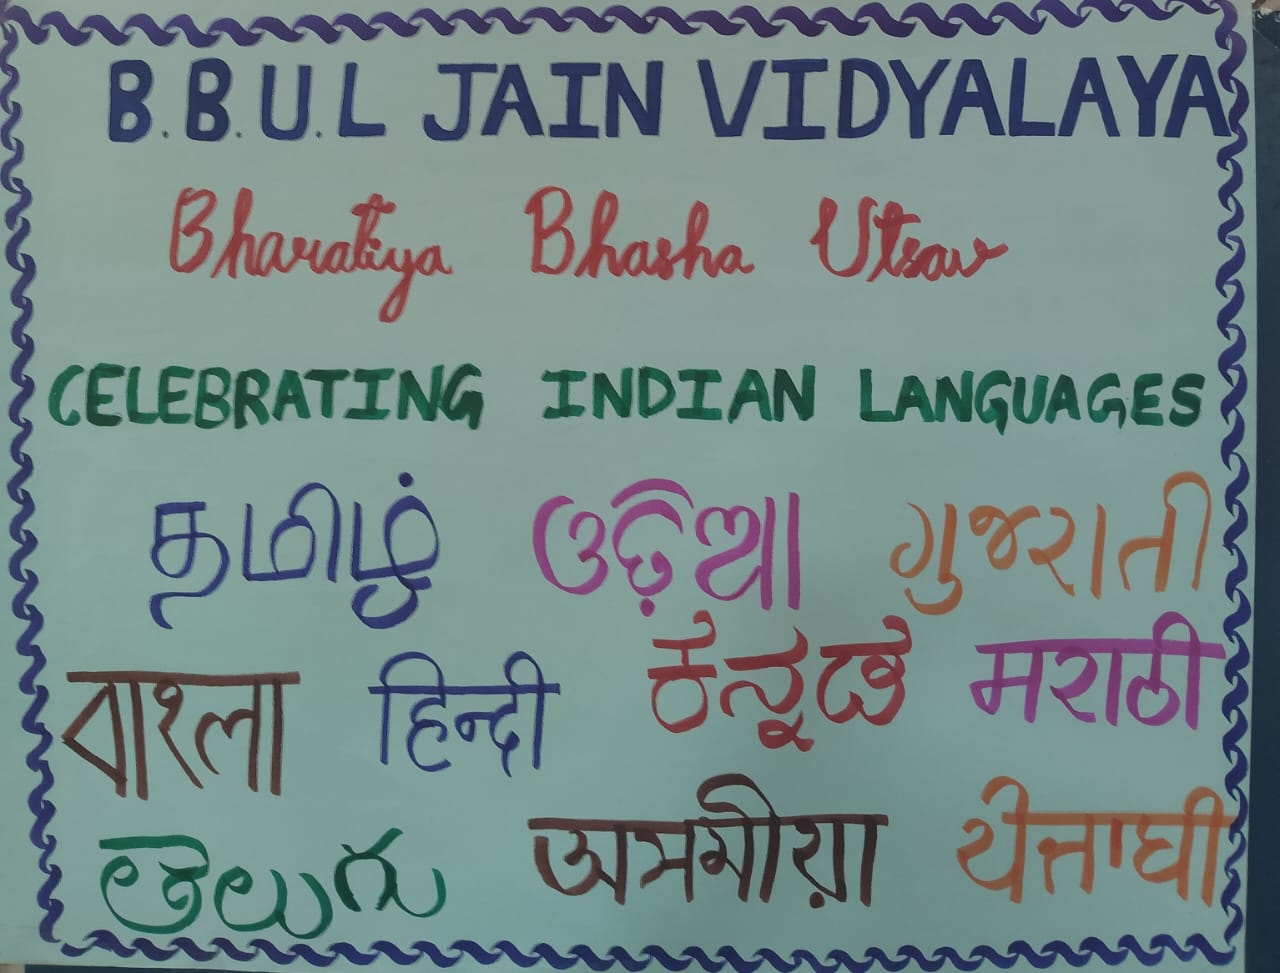 B.B.U.L JAIN VIDYALAYA
Bharatiya Bhasha Utsav
CELEBRATING INDIAN LANGUAGES
தமிழ் ଓଡ଼ିଆ ગુજરાતી
বাংলা हिन्दी ಕನ್ನಡ मराठी
తెలుగు অসমীয়া